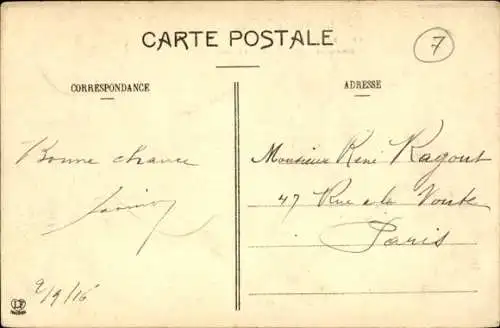 CARTE POSTALE
7
CORRESPONDANCE
ADRESSE
Bonne chance
9/9/16
Monsieur René Ragout
47 Rue de la Voute
Paris